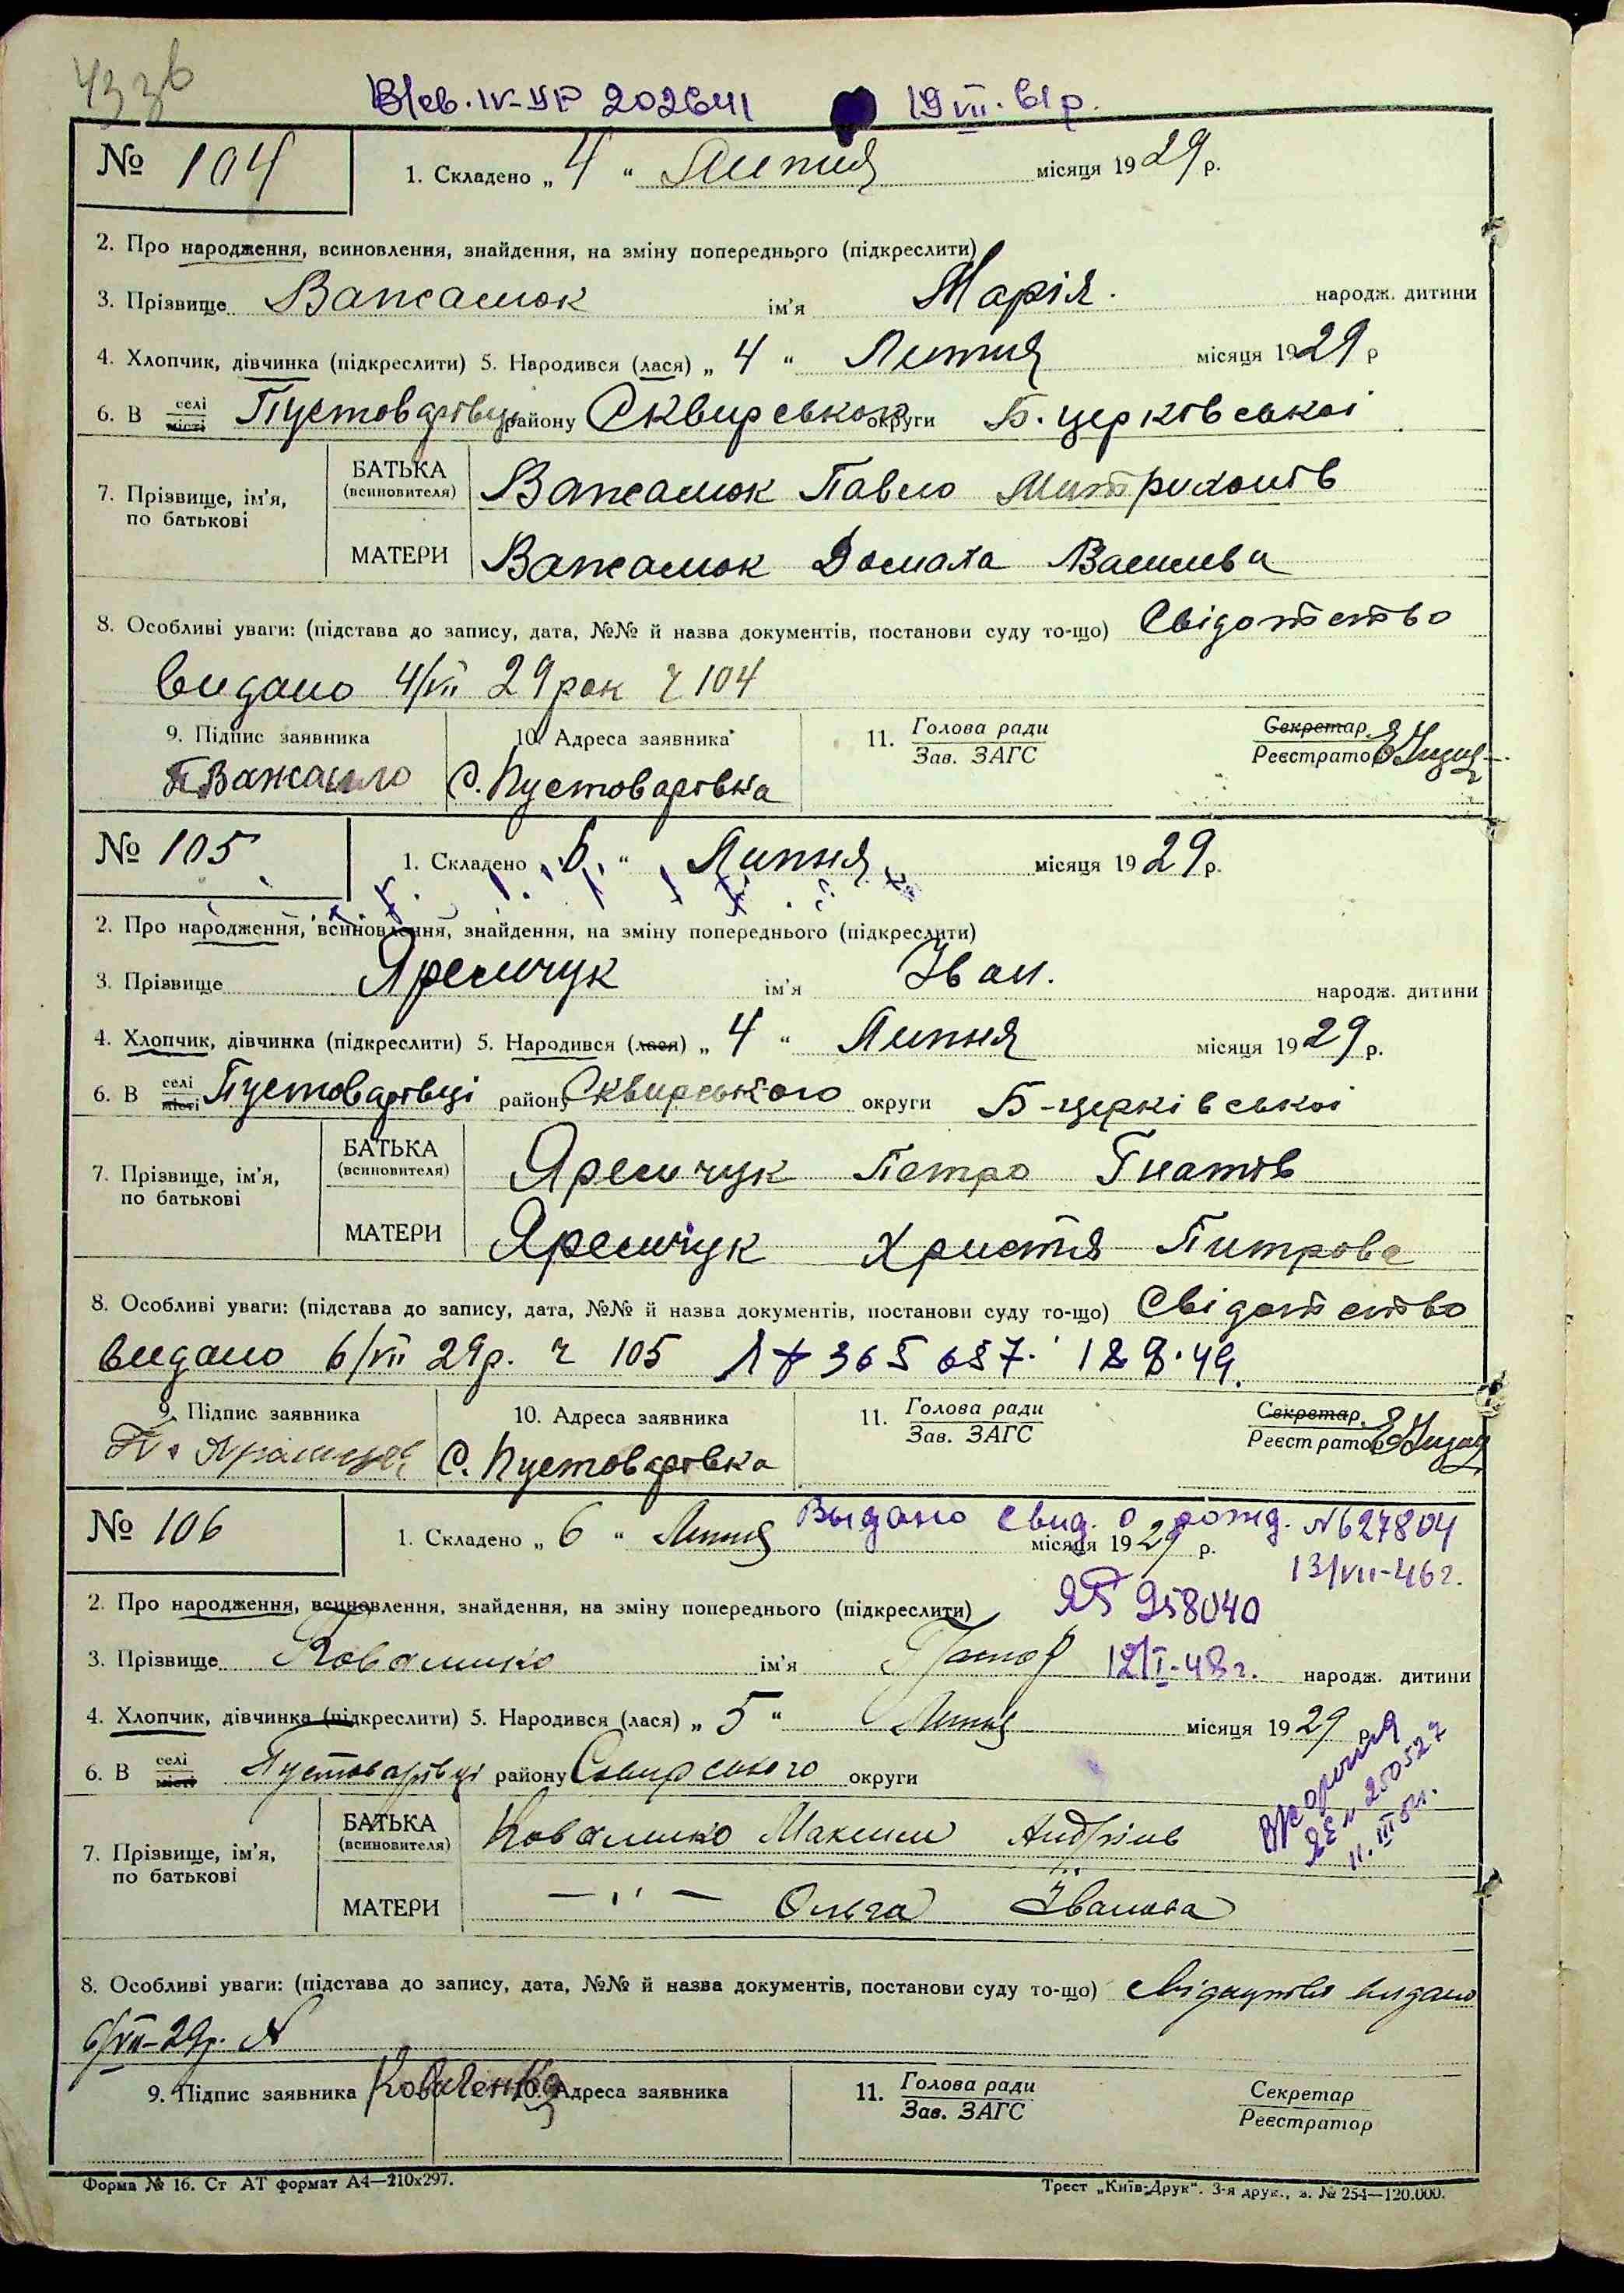 43зв
19 VII. 61р.
№ 104
1. Складено „ 4 “ Липня місяця 1929 р.
2. Про народження, всиновлення, знайдення, на зміну попереднього (підкреслити)
3. Прізвище Важалюк ім'я Марія. народж. дитини
4. Хлопчик, дівчинка (підкреслити) 5. Народився (лася) „ 4 “ Липня місяця 1929 р
6. В селі місті Пустоварівці району Сквирського округи Б. церківської
7. Прізвище, ім'я, по батькові
БАТЬКА (всиновителя) Важалюк Павло
МАТЕРИ Важалюк Домаха Василева
8. Особливі уваги: (підстава до запису, дата, №№ й назва документів, постанови суду то-що) Свідотство
видано 4/VII 29 рок ч 104
9. Підпис заявника 10. Адреса заявника 11. Голова ради Зав. ЗАГС Секретар Реєстратор
С. Пустоварівка
№ 105
1. Складено „ 6 “ Липня місяця 1929 р.
2. Про народження, всиновлення, знайдення, на зміну попереднього (підкреслити)
3. Прізвище Яремчук ім'я Іван. народж. дитини
4. Хлопчик, дівчинка (підкреслити) 5. Народився (лася) „ 4 “ Липня місяця 1929 р.
6. В селі місті Пустоварівці району Сквирського округи Б-церківської
7. Прізвище, ім'я, по батькові
БАТЬКА (всиновителя) Яремчук Петро Гнатів
МАТЕРИ Яремчук Христя Питрова
8. Особливі уваги: (підстава до запису, дата, №№ й назва документів, постанови суду то-що) Свідотство
видано 6/VII 29р. ч 105
9. Підпис заявника 10. Адреса заявника 11. Голова ради Зав. ЗАГС Секретар Реєстратор
С. Пустоварівка
Выдано свид. о рожд. №627804
№ 106
1. Складено „ 6 “ Липня місяця 1929 р.
13/VII-46г.
2. Про народження, всиновлення, знайдення, на зміну попереднього (підкреслити)
958040
3. Прізвище Коваленко ім'я 12/I-48г. народж. дитини
4. Хлопчик, дівчинка (підкреслити) 5. Народився (лася) „ 5 “ Липня місяця 1929 р
6. В селі місті Пустоварівці району Сквирського округи
вторичня
250527
11. III 51г.
7. Прізвище, ім'я, по батькові
БАТЬКА (всиновителя) Коваленко Максим Андріїв
МАТЕРИ — ıı — Ольга Іванова
8. Особливі уваги: (підстава до запису, дата, №№ й назва документів, постанови суду то-що) видано
6/VII-29р. №
9. Підпис заявника Коваленко 10. Адреса заявника 11. Голова ради Зав. ЗАГС Секретар Реєстратор
Форма № 16. Ст АТ формат А4—210x297.
Трест „Київ-Друк“. 3-я друк., з. № 254—120.000.